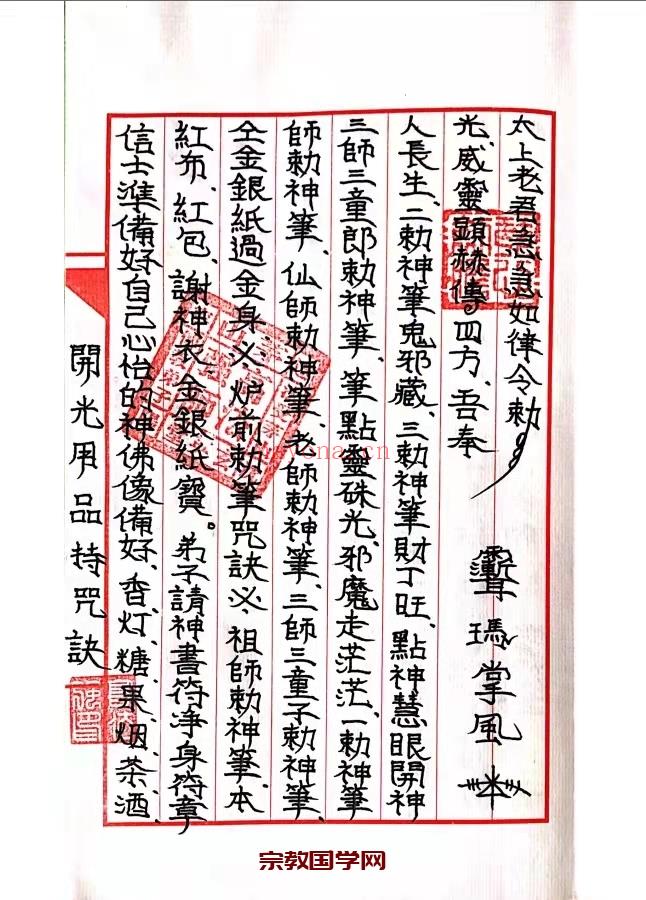 開光用品持咒訣
信士準備好自己心怡的神佛像備好、香灯、糖果、烟、茶、酒、
紅布、紅包、謝神衣、金銀紙寶。弟子請神書符淨身符章
仝金銀紙過金身、必、炉前勅筆咒訣必、祖師勅神筆、本
師勅神筆、仙師勅神筆、老師勅神筆、三師三童子勅神筆、
三師三童郎勅神筆、筆點靈硃光、邪魔走茫茫、一勅神筆
人長生、二勅神筆鬼邪藏、三勅神筆財丁旺、點神慧眼開神
光、威靈顯赫傳四方、吾奉
太上老君急急如律令勅
掌風
宗教国学网